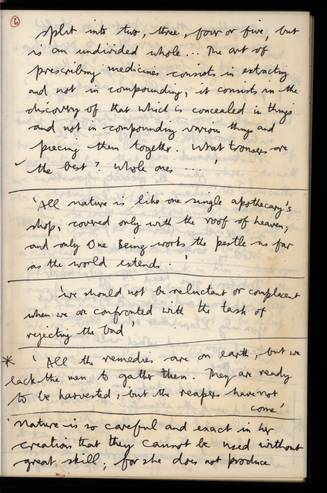 split into two, three, four or five, but
is an undivided whole... The art of
prescribing medicines consists in extracting
and not in compounding; it consists in the
discovery of that which is concealed in things
and not in compounding various things and
piecing them together. What trousers are
the best? Whole ones ....'
'All nature is like one single apothecary's
shop, covered only with the roof of heaven;
and only One Being works the pestle as far
as the world extends.'
'We should not be reluctant or complacent
when we are confronted with the task of
rejecting the bad'
* 'All the remedies are on earth, but we
lack the men to gather them. They are ready
to be harvested, but the reapers have not
come'
'Nature is so careful and exact in her
creations that they cannot be used without
great skill; for she does not produce